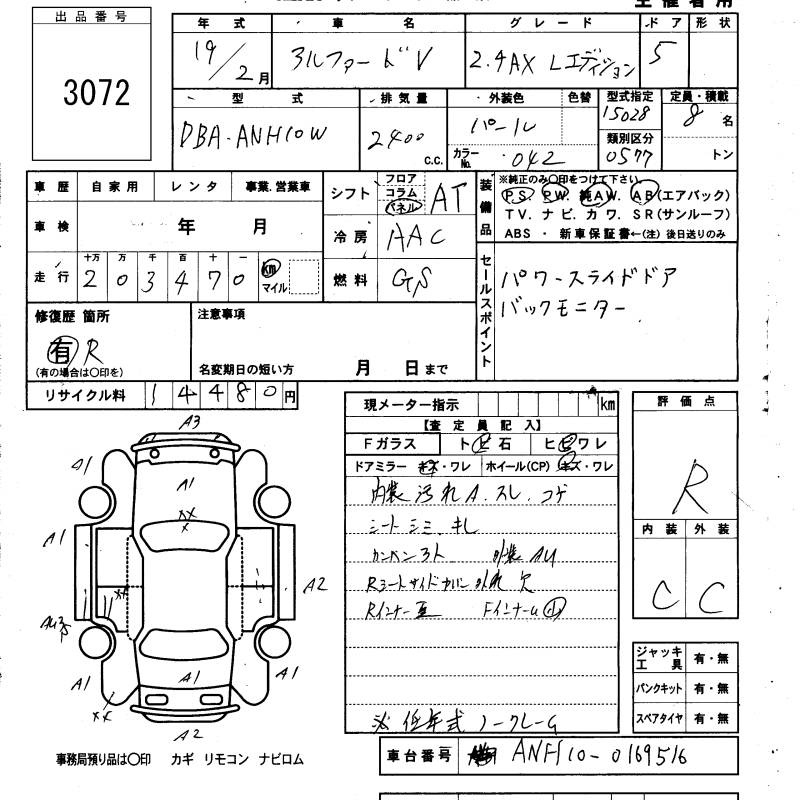 出品番号
3072
年式 車名 グレード ドア 形状
19/2月 アルファードV 2.4AX Lエディション 5
型式 排気量 外装色 色替 型式指定 定員・積載
DBA-ANH10W 2400 c.c. パール 15028 8名
カラーNo. 042 類別区分 0577 トン
車歴 自家用 レンタ 事業.営業車
車検 年 月
走行 十万 万 千 百 十 一
203470 km マイル
シフト フロア コラム パネル AT
冷房 AAC
燃料 GS
装備品
※純正のみ〇印をつけて下さい
PS. PW. 純AW. AB(エアバック)
TV. ナビ. カワ. SR(サンルーフ)
ABS ・ 新車保証書←(注) 後日送りのみ
セールスポイント
パワースライドドア
バックモニター
修復歴 箇所
有 R
(有の場合は〇印を)
注意事項
名変期日の短い方 月 日まで
リサイクル料 14480円
現メーター指示 km
【査定員記入】
Fガラス トビ石 ヒビワレ
ドアミラー キズ・ワレ ホイール(CP) キズ・ワレ
内装 汚れ A. スレ. コゲ
シート シミ キレ
カンバン 3ト 外装 AU
Rシートサイドカバー 外れ 欠
Rインナー
Fインナー
※ 低年式 ノークレーム
評価点
R
内装 外装
C C
ジャッキ工具 有・無
パンクキット 有・無
スペアタイヤ 有・無
A3
A1
A1
A1
XX
X
A1
A1
XX
A2
A1
A1
A1
XX
A2
事務局預り品は〇印 カギ リモコン ナビロム
車台番号 ANH10-0169516